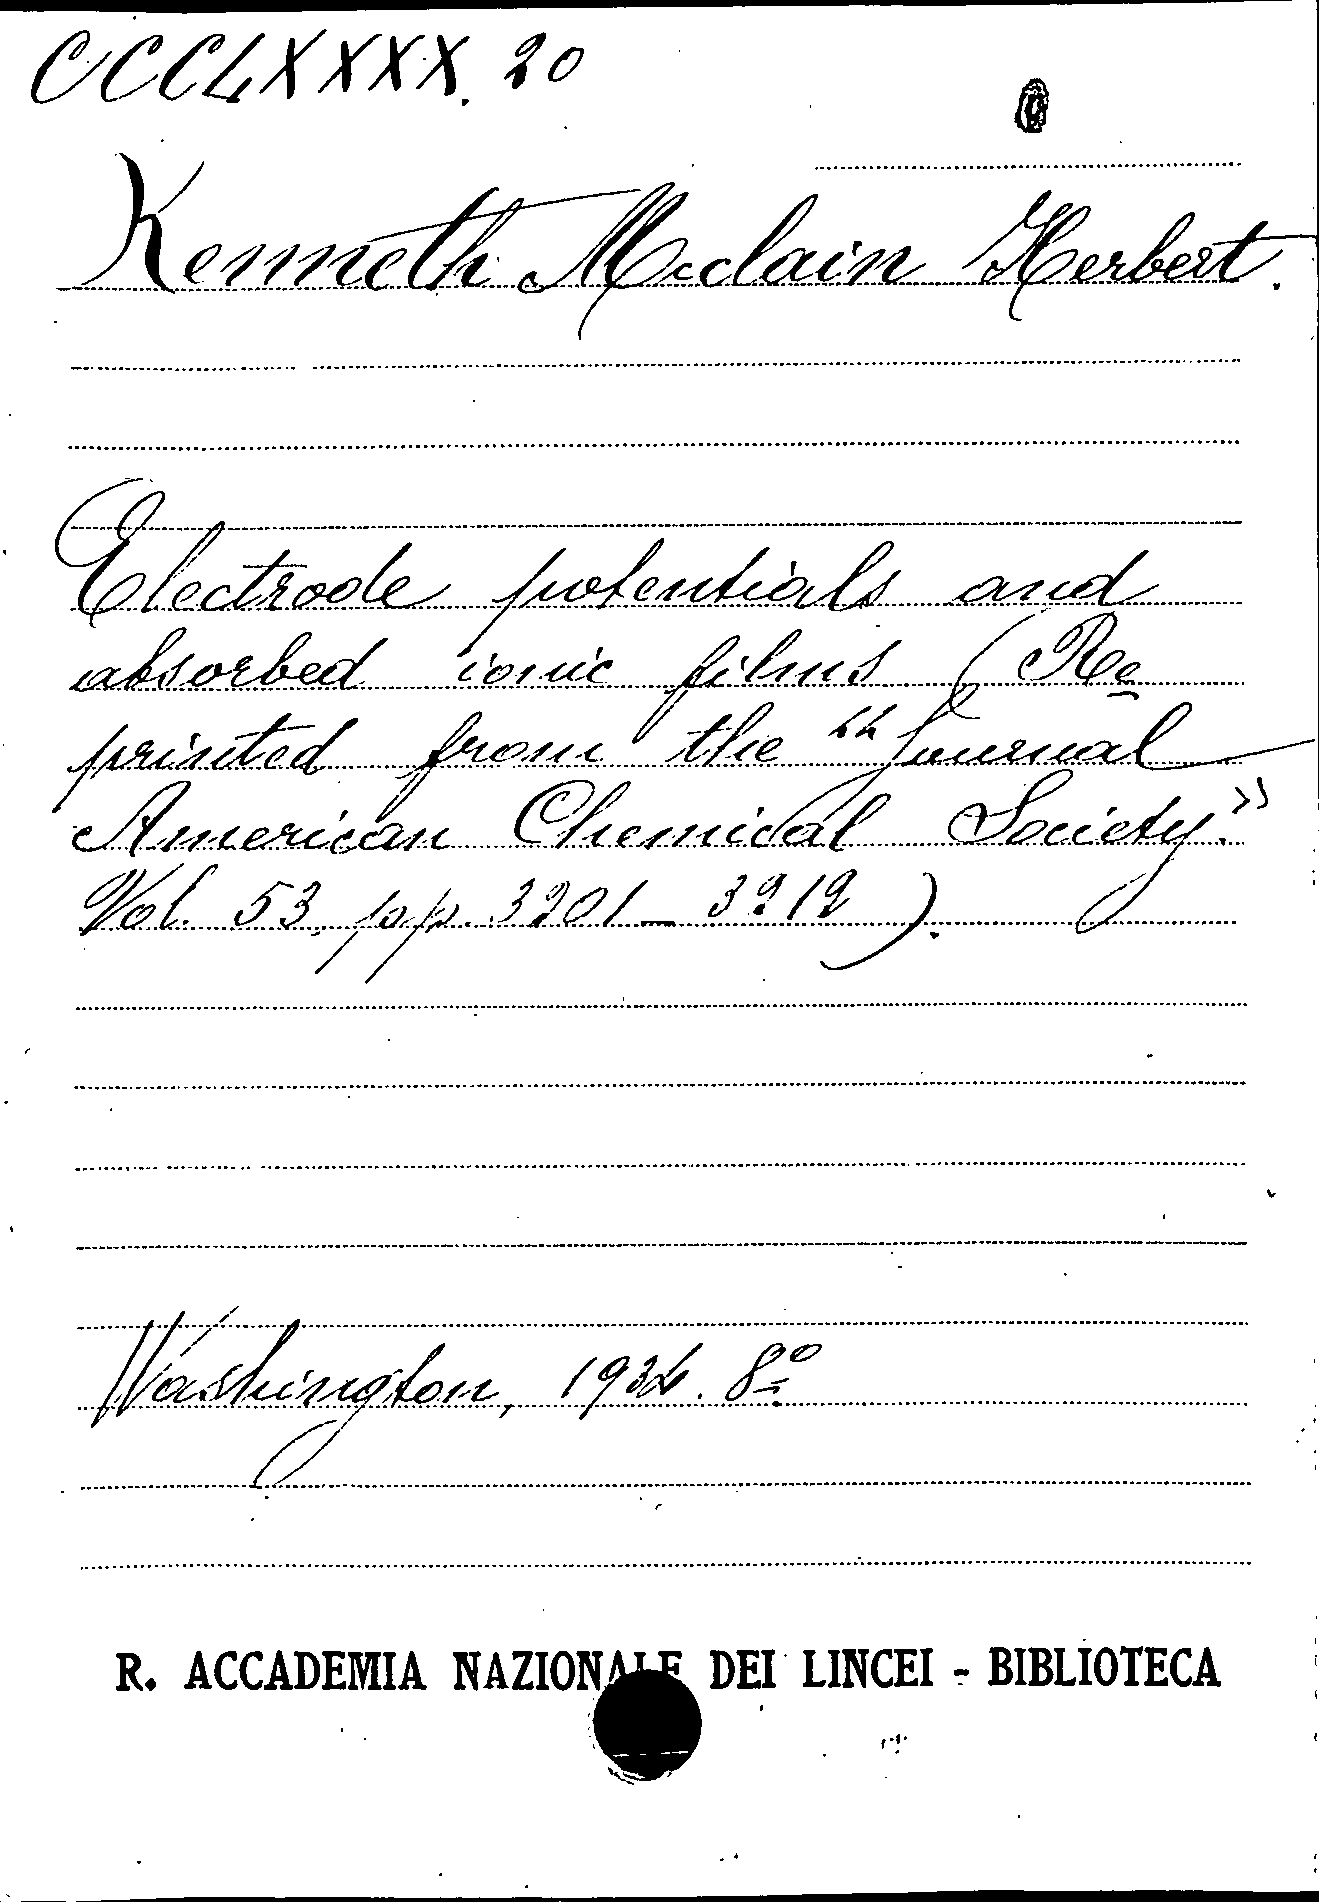 CCCLXXXX. 20
Kenneth Mcclain Herbert.
Electrode potentials and
absorbed ionic films (Re
printed from the "Journal
American Chemical Society."
Vol. 53. pp. 3201-3212).
Washington, 1934. 8º
R. ACCADEMIA NAZIONALE DEI LINCEI - BIBLIOTECA